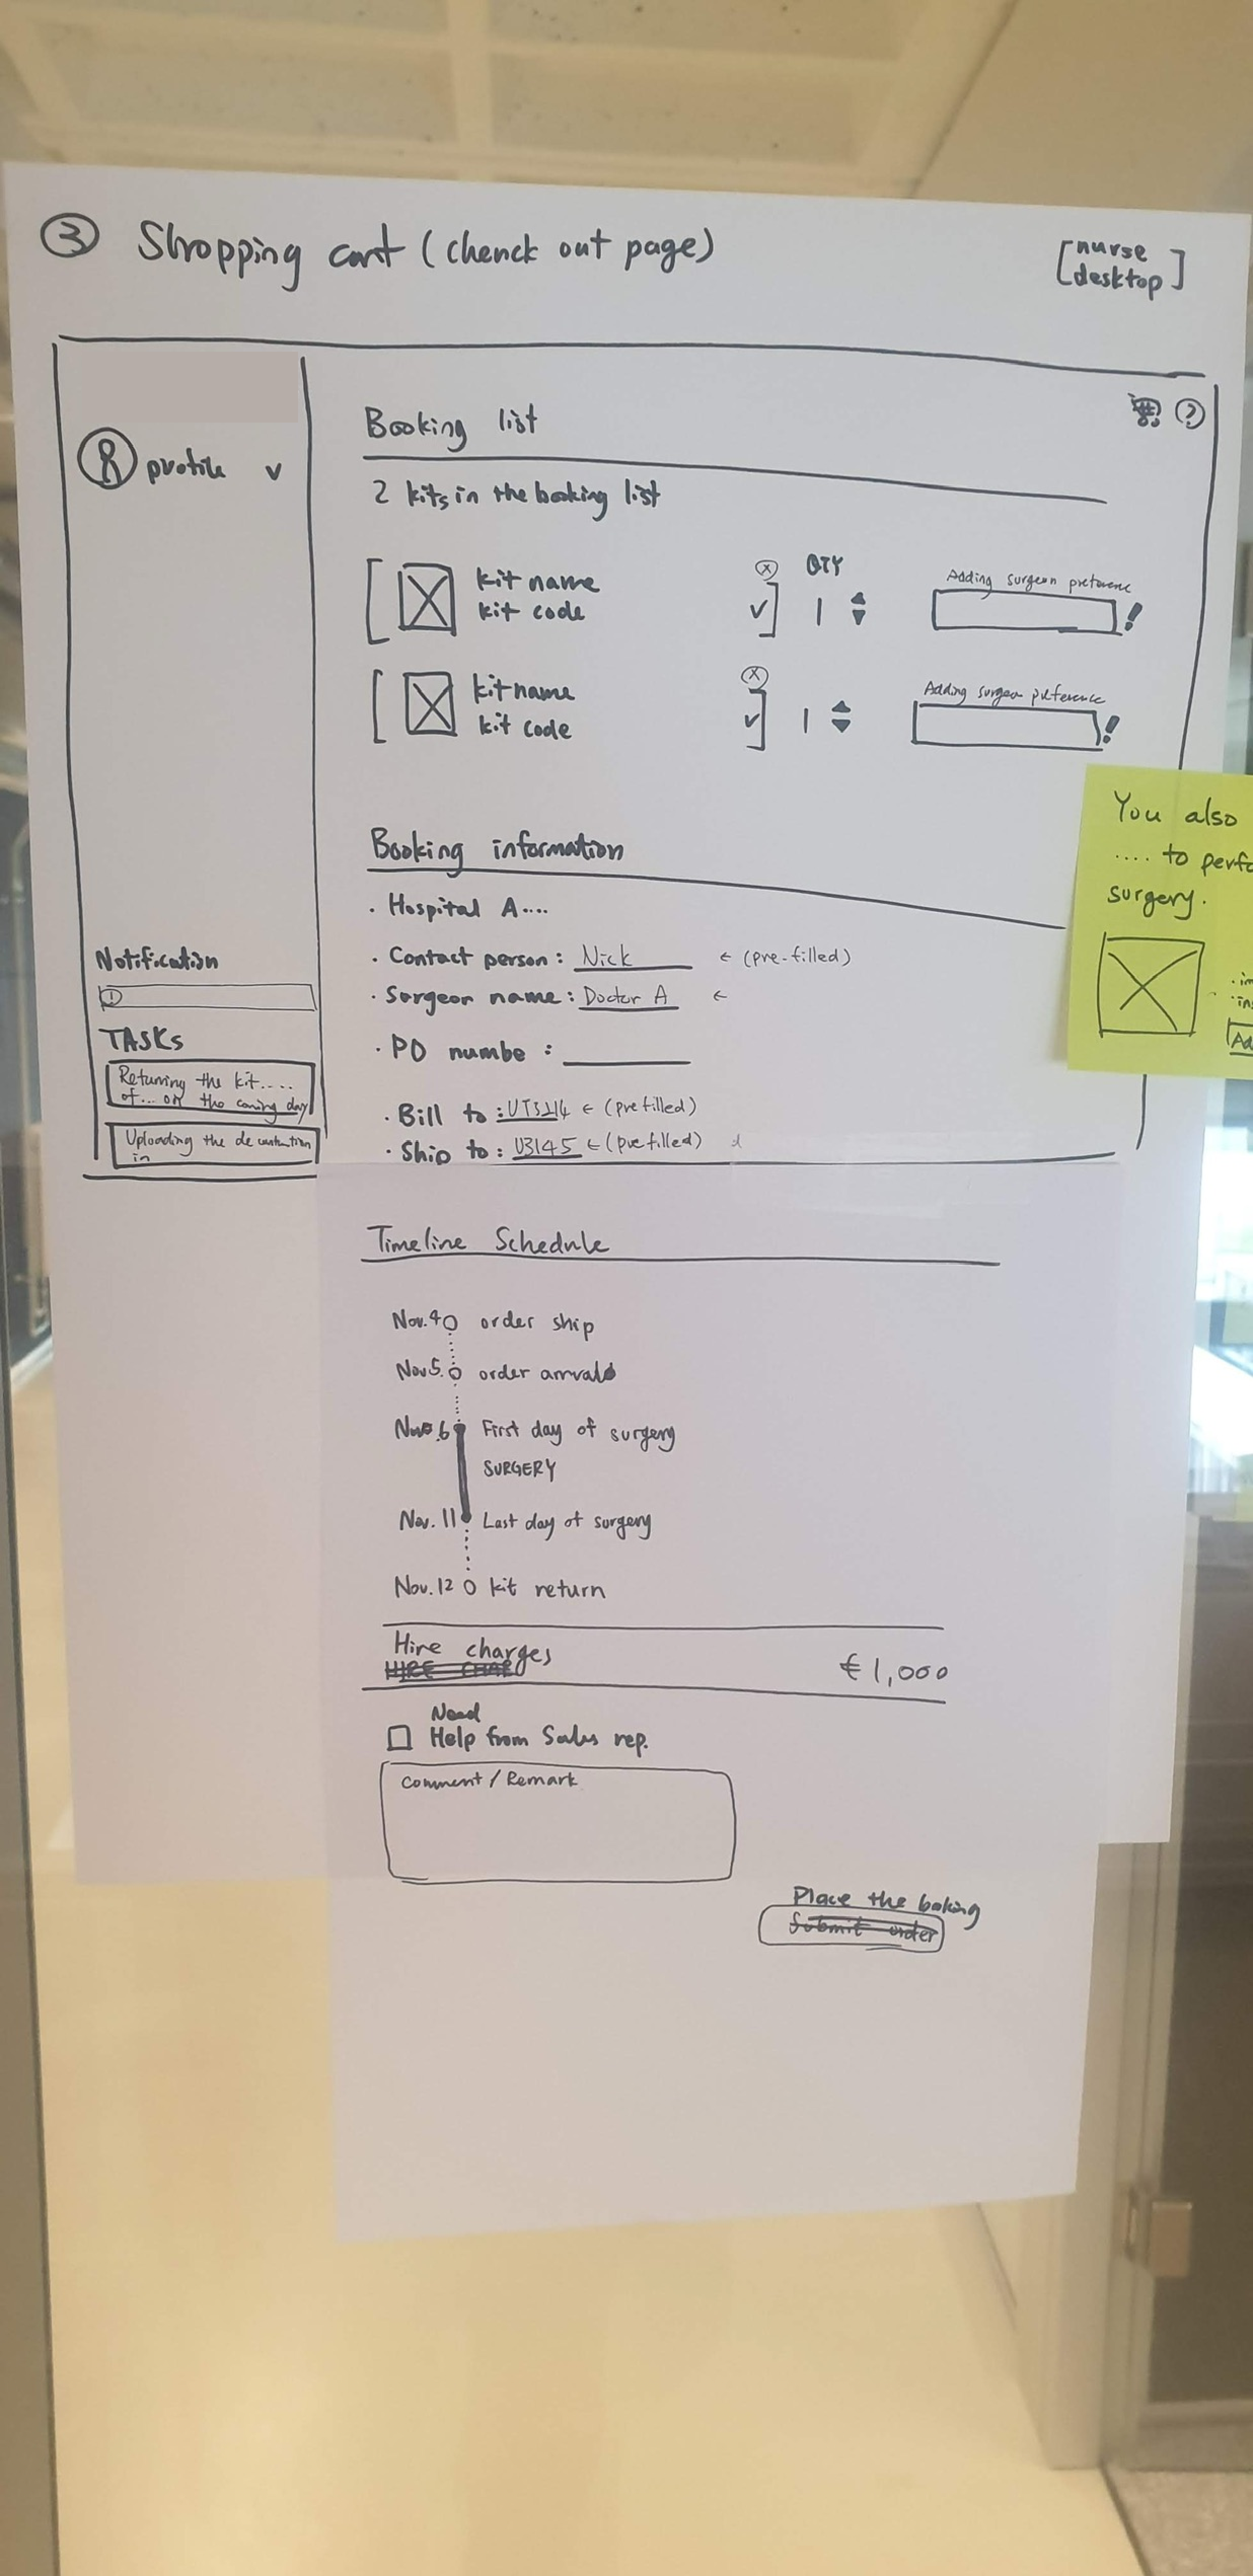 3 Shopping cart (chenck out page)
[nurse
desktop]
profile v
Booking list
?
2 kits in the booking list
kit name
kit code
x
QTY
1
Adding surgeon preference
!
kit name
kit code
x
1
Adding surgeon preference
!
You also
.... to perfo
surgery.
Ad
Booking information
· Hospital A....
· Contact person: Nick ← (pre-filled)
· Surgeon name: Doctor A ←
· PO numbe :
· Bill to: ← (prefilled)
· Ship to: U3145 ← (prefilled)
Notification
TASKS
Returning the kit....
of... on the coming day
Uploading the
in
Timeline Schedule
Nov.4 order ship
Nov5. order arrival
Nov.6 First day of surgery
SURGERY
Nov.11 Last day of surgery
Nov.12 kit return
Hire charges
HIRE CHAR
€1,000
Need
Help from Sales rep.
Comment / Remark
Place the boking
Submit order